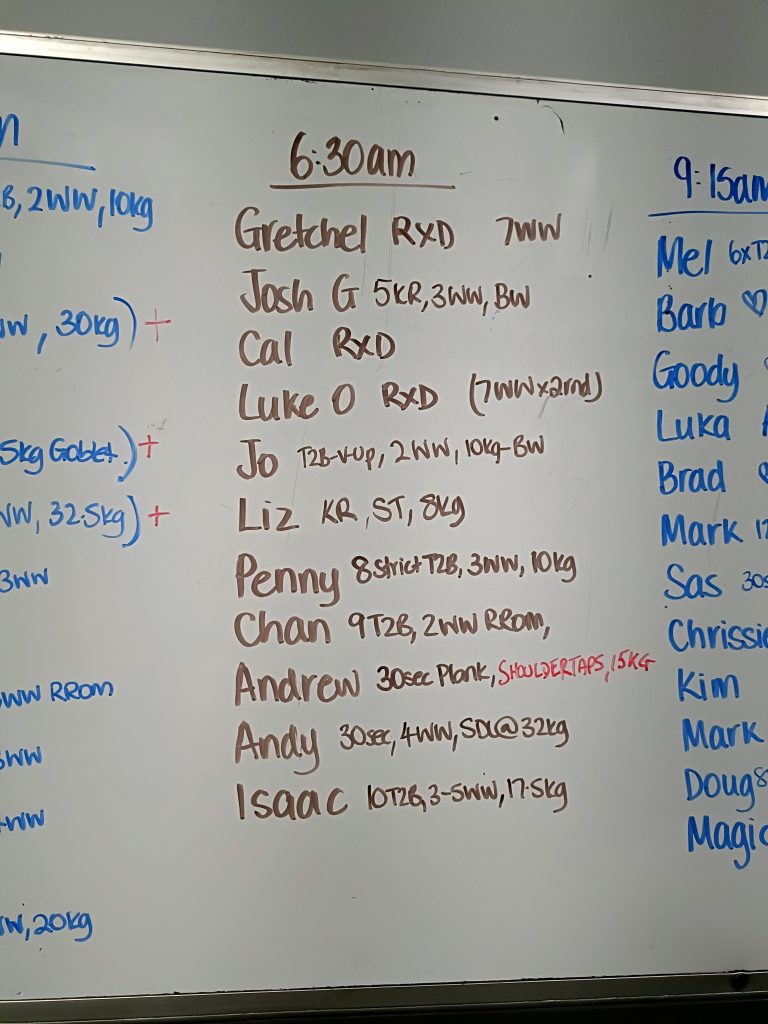 2WW, 10kg
30kg) +
5kg Goblet.) +
32.5kg) +
3WW
WW RROM
WW
WW
20kg
6:30am
Gretchel RXD 7WW
Josh G 5KR, 3WW, BW
Cal RXD
Luke O RXD (7WWx2rnd)
Jo T2B-V-Up, 2WW, 10kg-BW
Liz KR, ST, 8kg
Penny 8 Strict T2B, 3WW, 10kg
Chan 9T2B, 2WW RROM,
Andrew 30sec Plank, SHOULDERTAPS, 15KG
Andy 30sec, 4WW, SDL@32kg
Isaac 10T2B, 3-5WW, 17.5kg
9:15am
Mel 6xT2
Barb ♡
Goody
Luka
Brad
Mark 12
Sas 30s
Chrissie
Kim
Mark
Doug 8
Magic